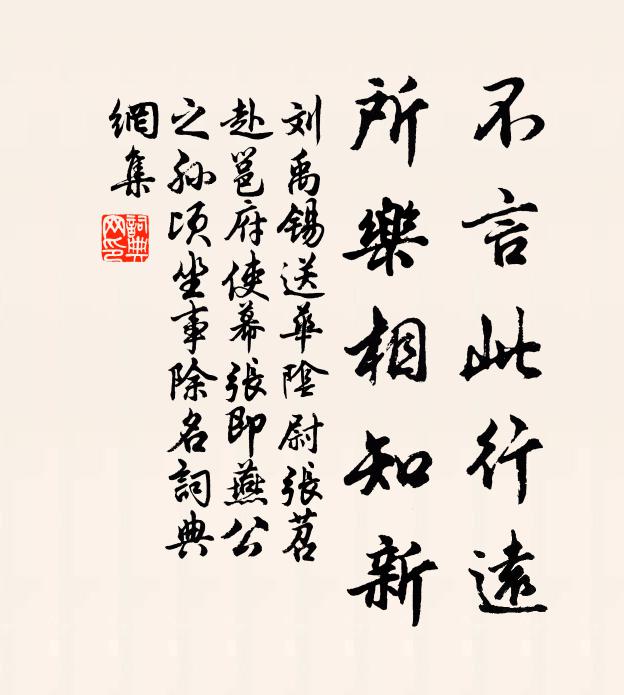 不言此行遠
所樂相知新
刘禹錫送華陰尉張苕
赴邕府使幕張即燕公
之孫頃坐事除名詞典
網集
詞典網印